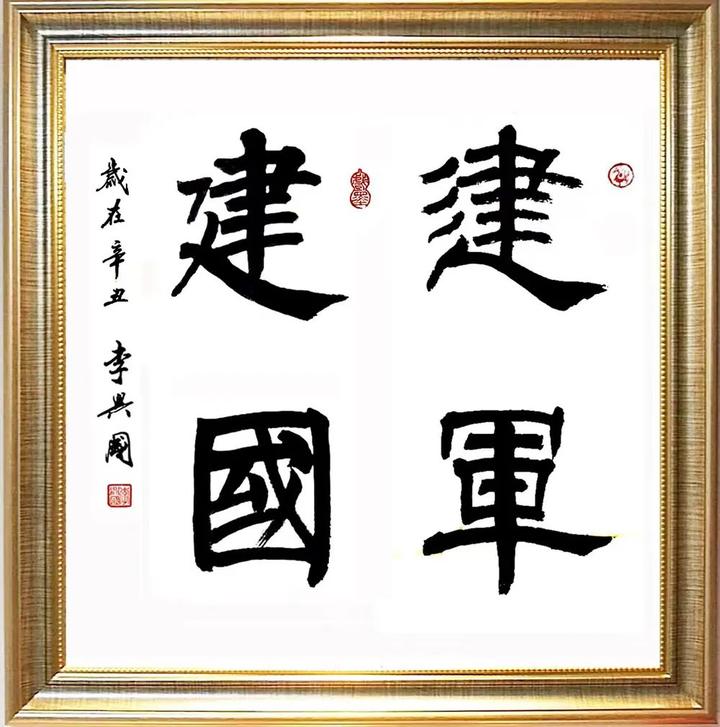 建軍
建國
歲在辛丑 李興國